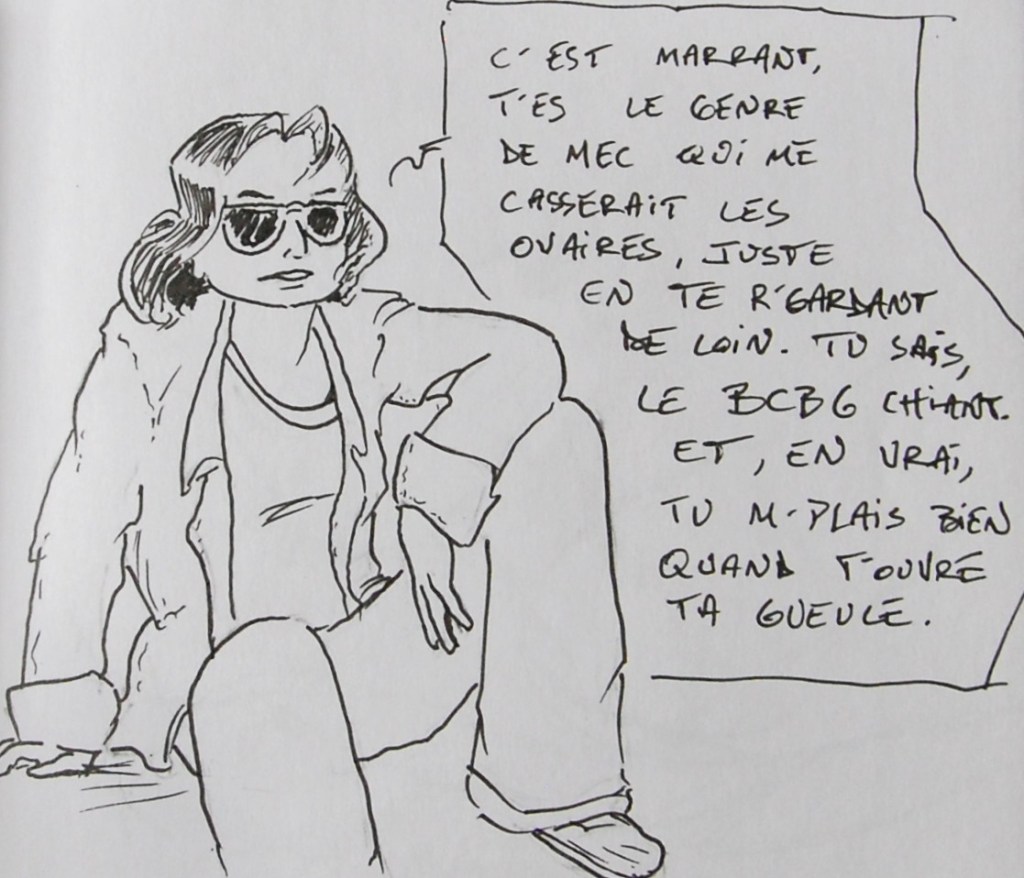 C'EST MARRANT,
T'ES LE GENRE
DE MEC QUI ME
CASSERAIT LES
OVAIRES, JUSTE
EN TE R'GARDANT
DE LOIN. TU SAIS,
LE BCBG CHIANT.
ET, EN VRAI,
TU M'PLAIS BIEN
QUAND T'OUVRE
TA GUEULE.